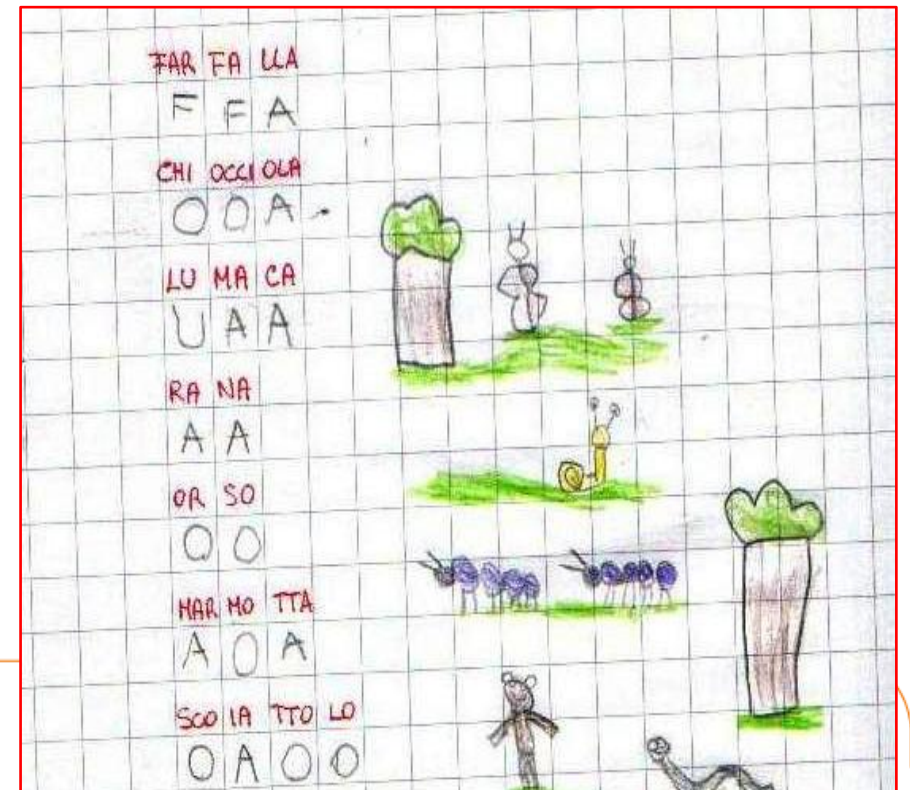 FAR FA LLA
F F A
CHI OCCI OLA
O O A
LU MA CA
U A A
RA NA
A A
OR SO
O O
MAR MO TTA
A O A
SCO IA TTO LO
O A O O